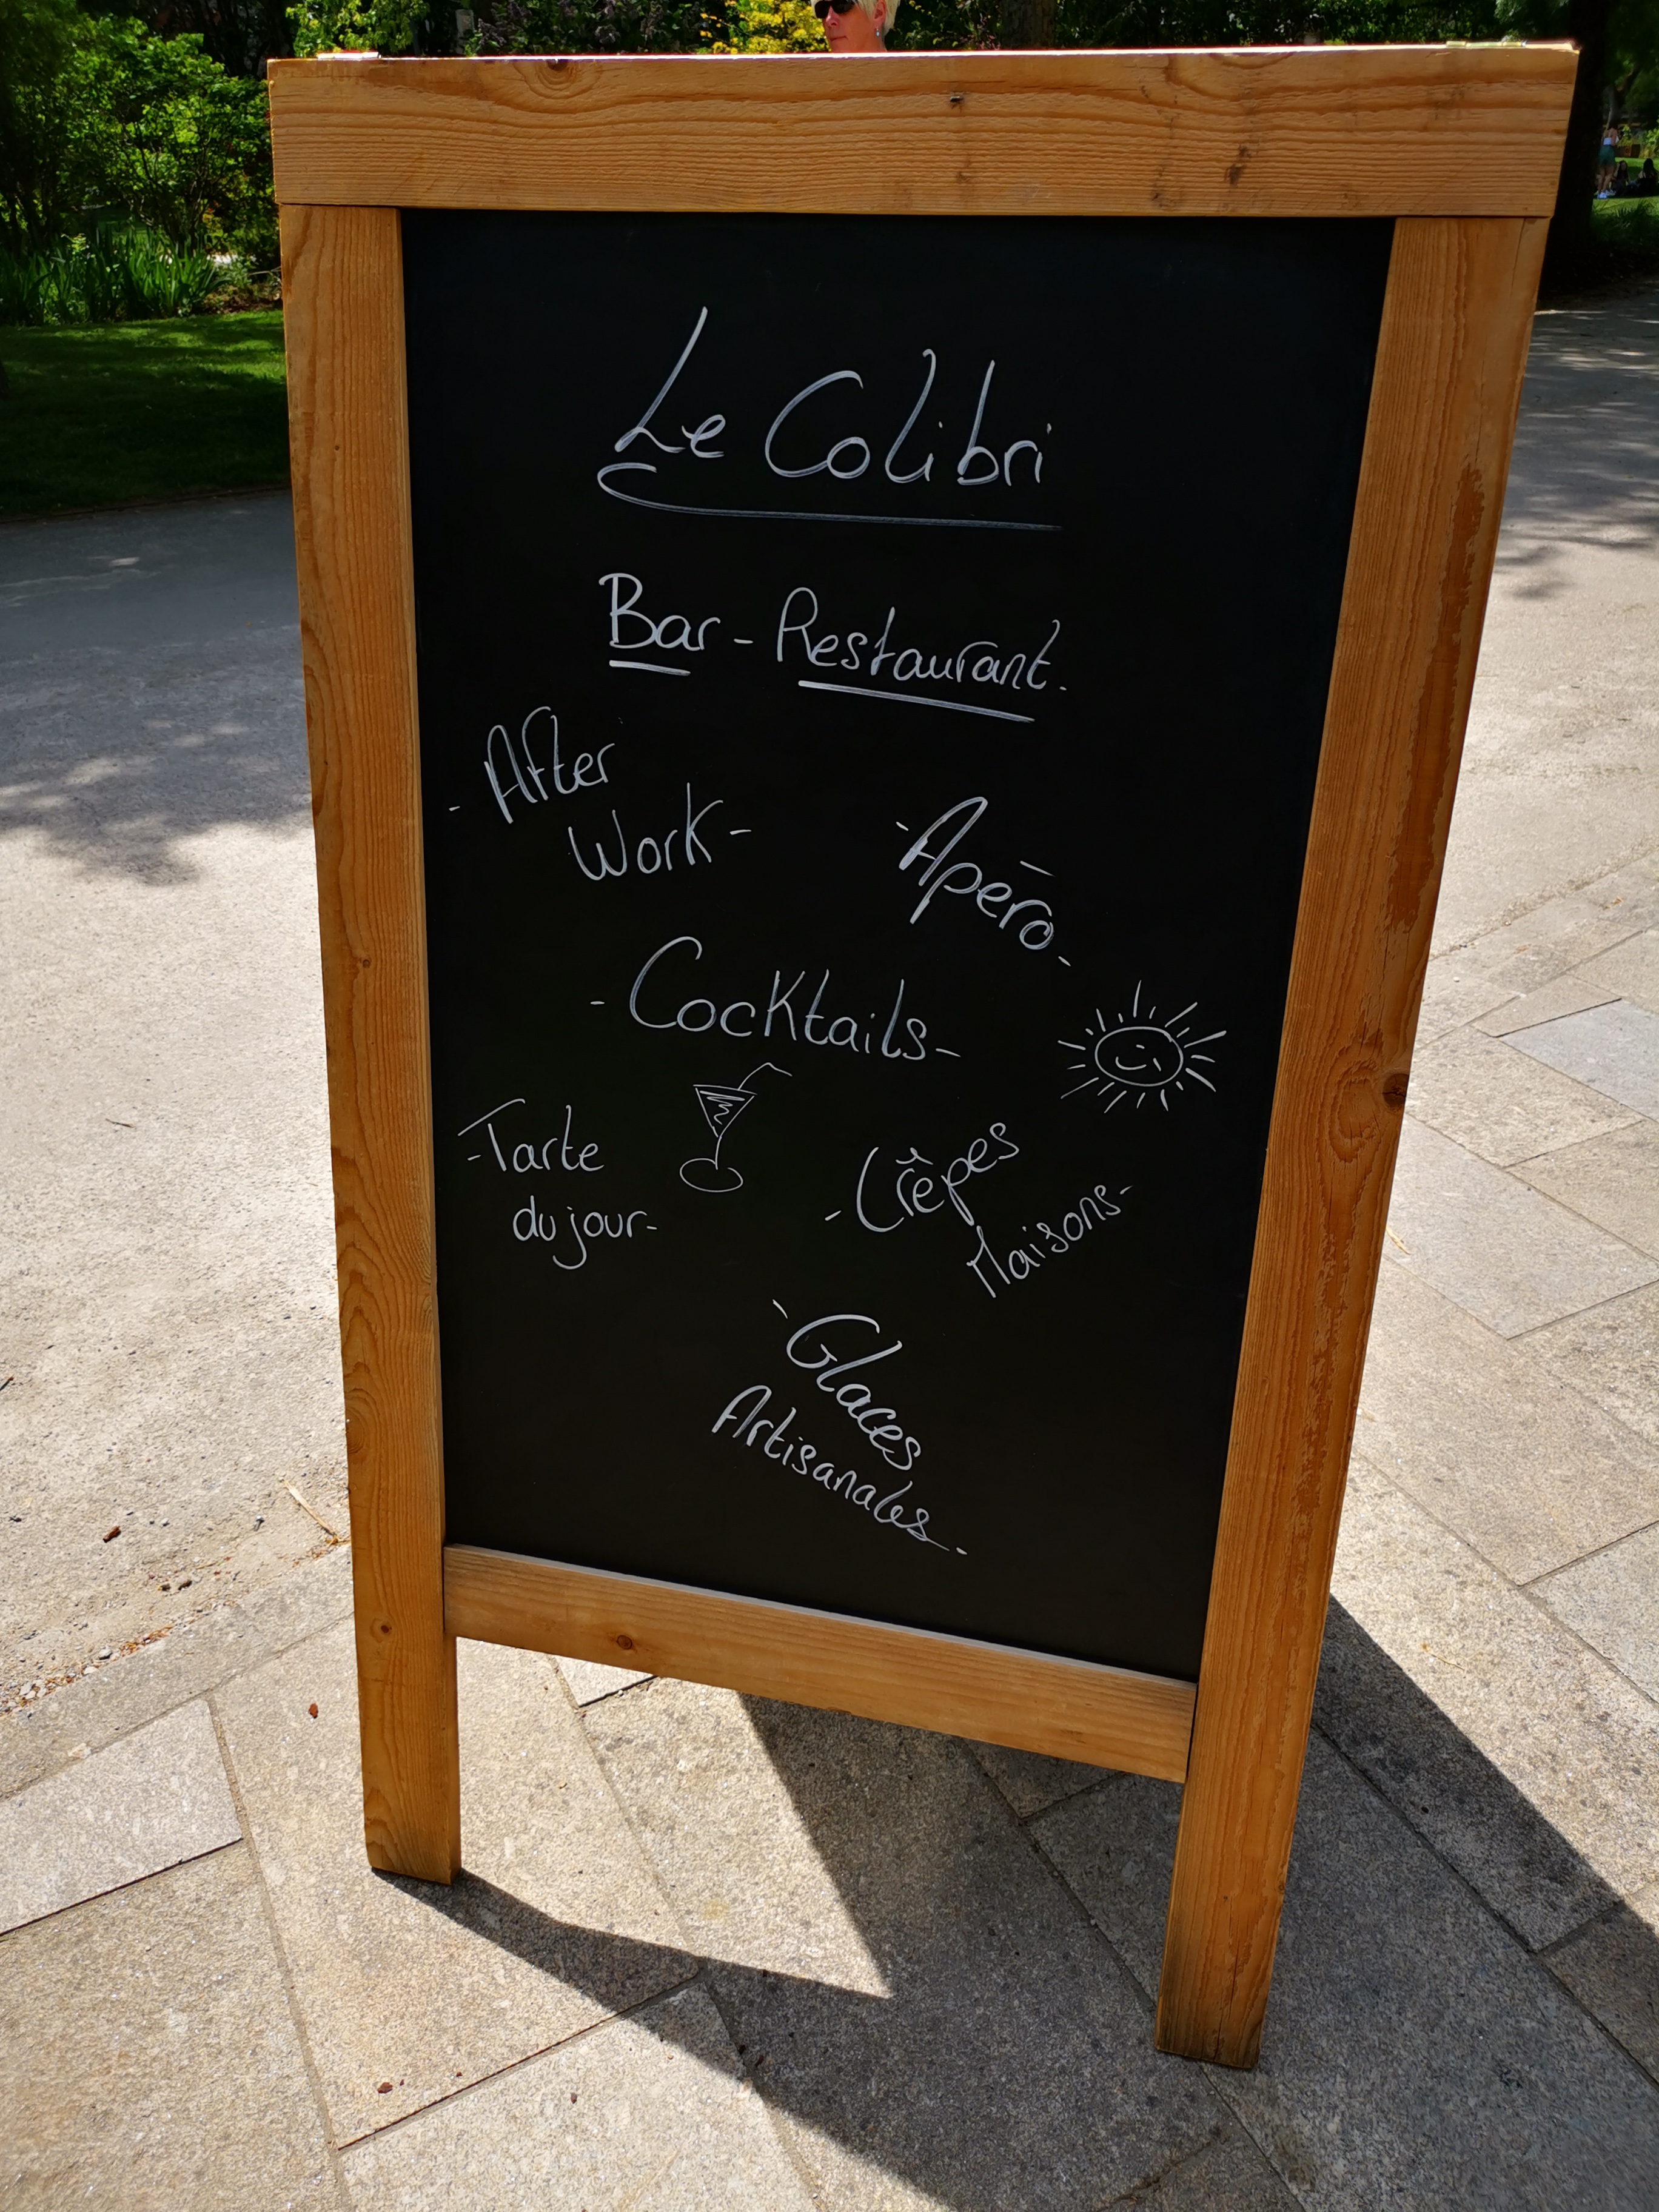 Le Colibri
Bar - Restaurant.
- After
Work -
- Apéro -
- Cocktails -
- Tarte
du jour -
- Crêpes
Maisons -
- Glaces
Artisanales -